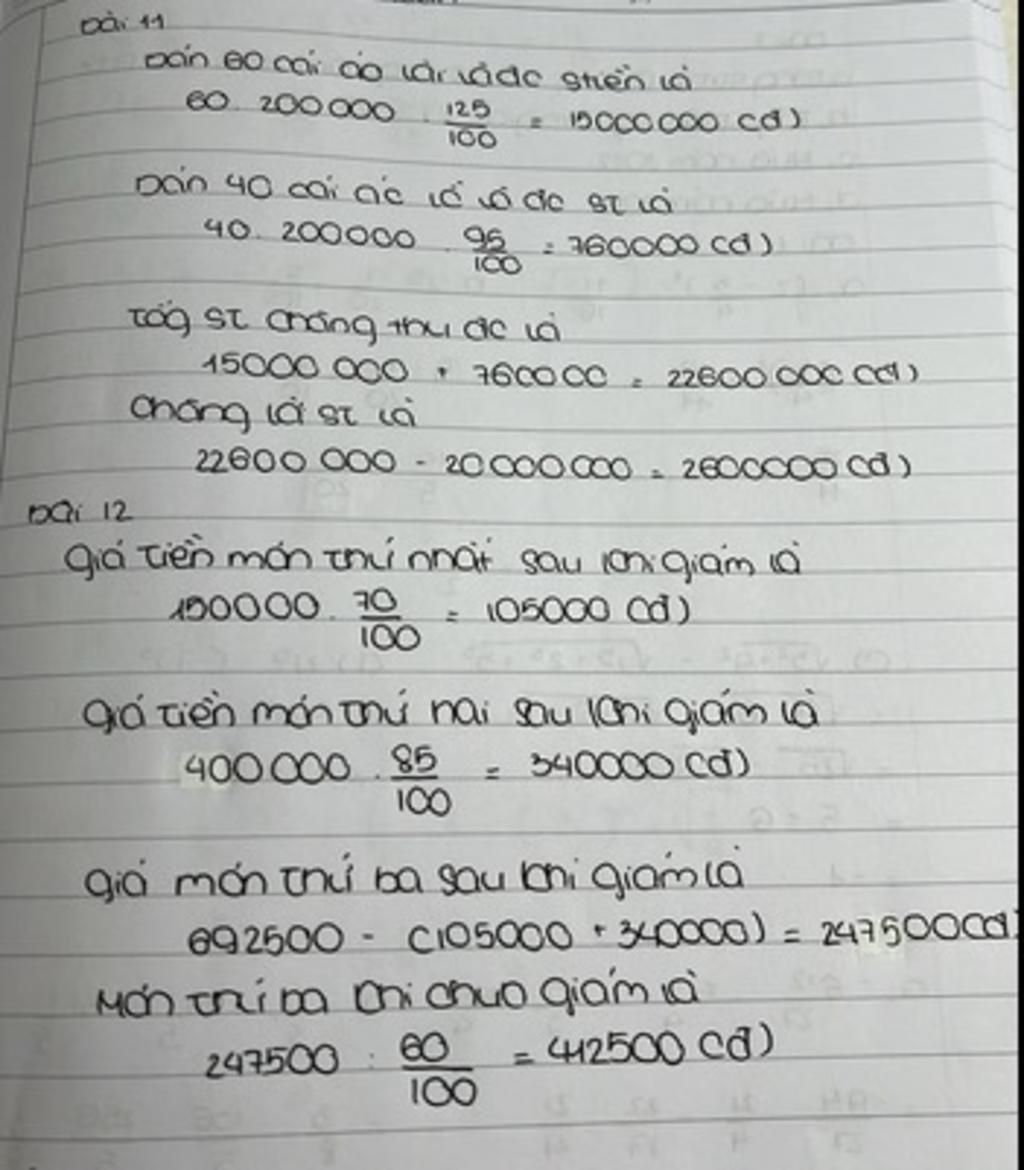 bài 11
bán 60 cái áo lãi và đc stiền là
60 . 200000 . 125/100 = 15000000 (đ)
bán 40 cái áo lỗ và đc st là
40 . 200000 . 95/100 = 760000 (đ)
tổg st chàng thu đc là
15000 000 + 760000 = 22600 000 (đ)
chàng lãi st là
22600 000 - 20000000 = 2600000 (đ)
bài 12
giá tiền món thứ nhất sau khi giảm là
150000 . 70/100 = 105000 (đ)
giá tiền món thứ hai sau khi giảm là
400000 . 85/100 = 340000 (đ)
giá món thứ ba sau khi giảm là
692500 - (105000 + 340000) = 247500 (đ)
Món thứ ba khi chưa giảm là
247500 : 60/100 = 412500 (đ)